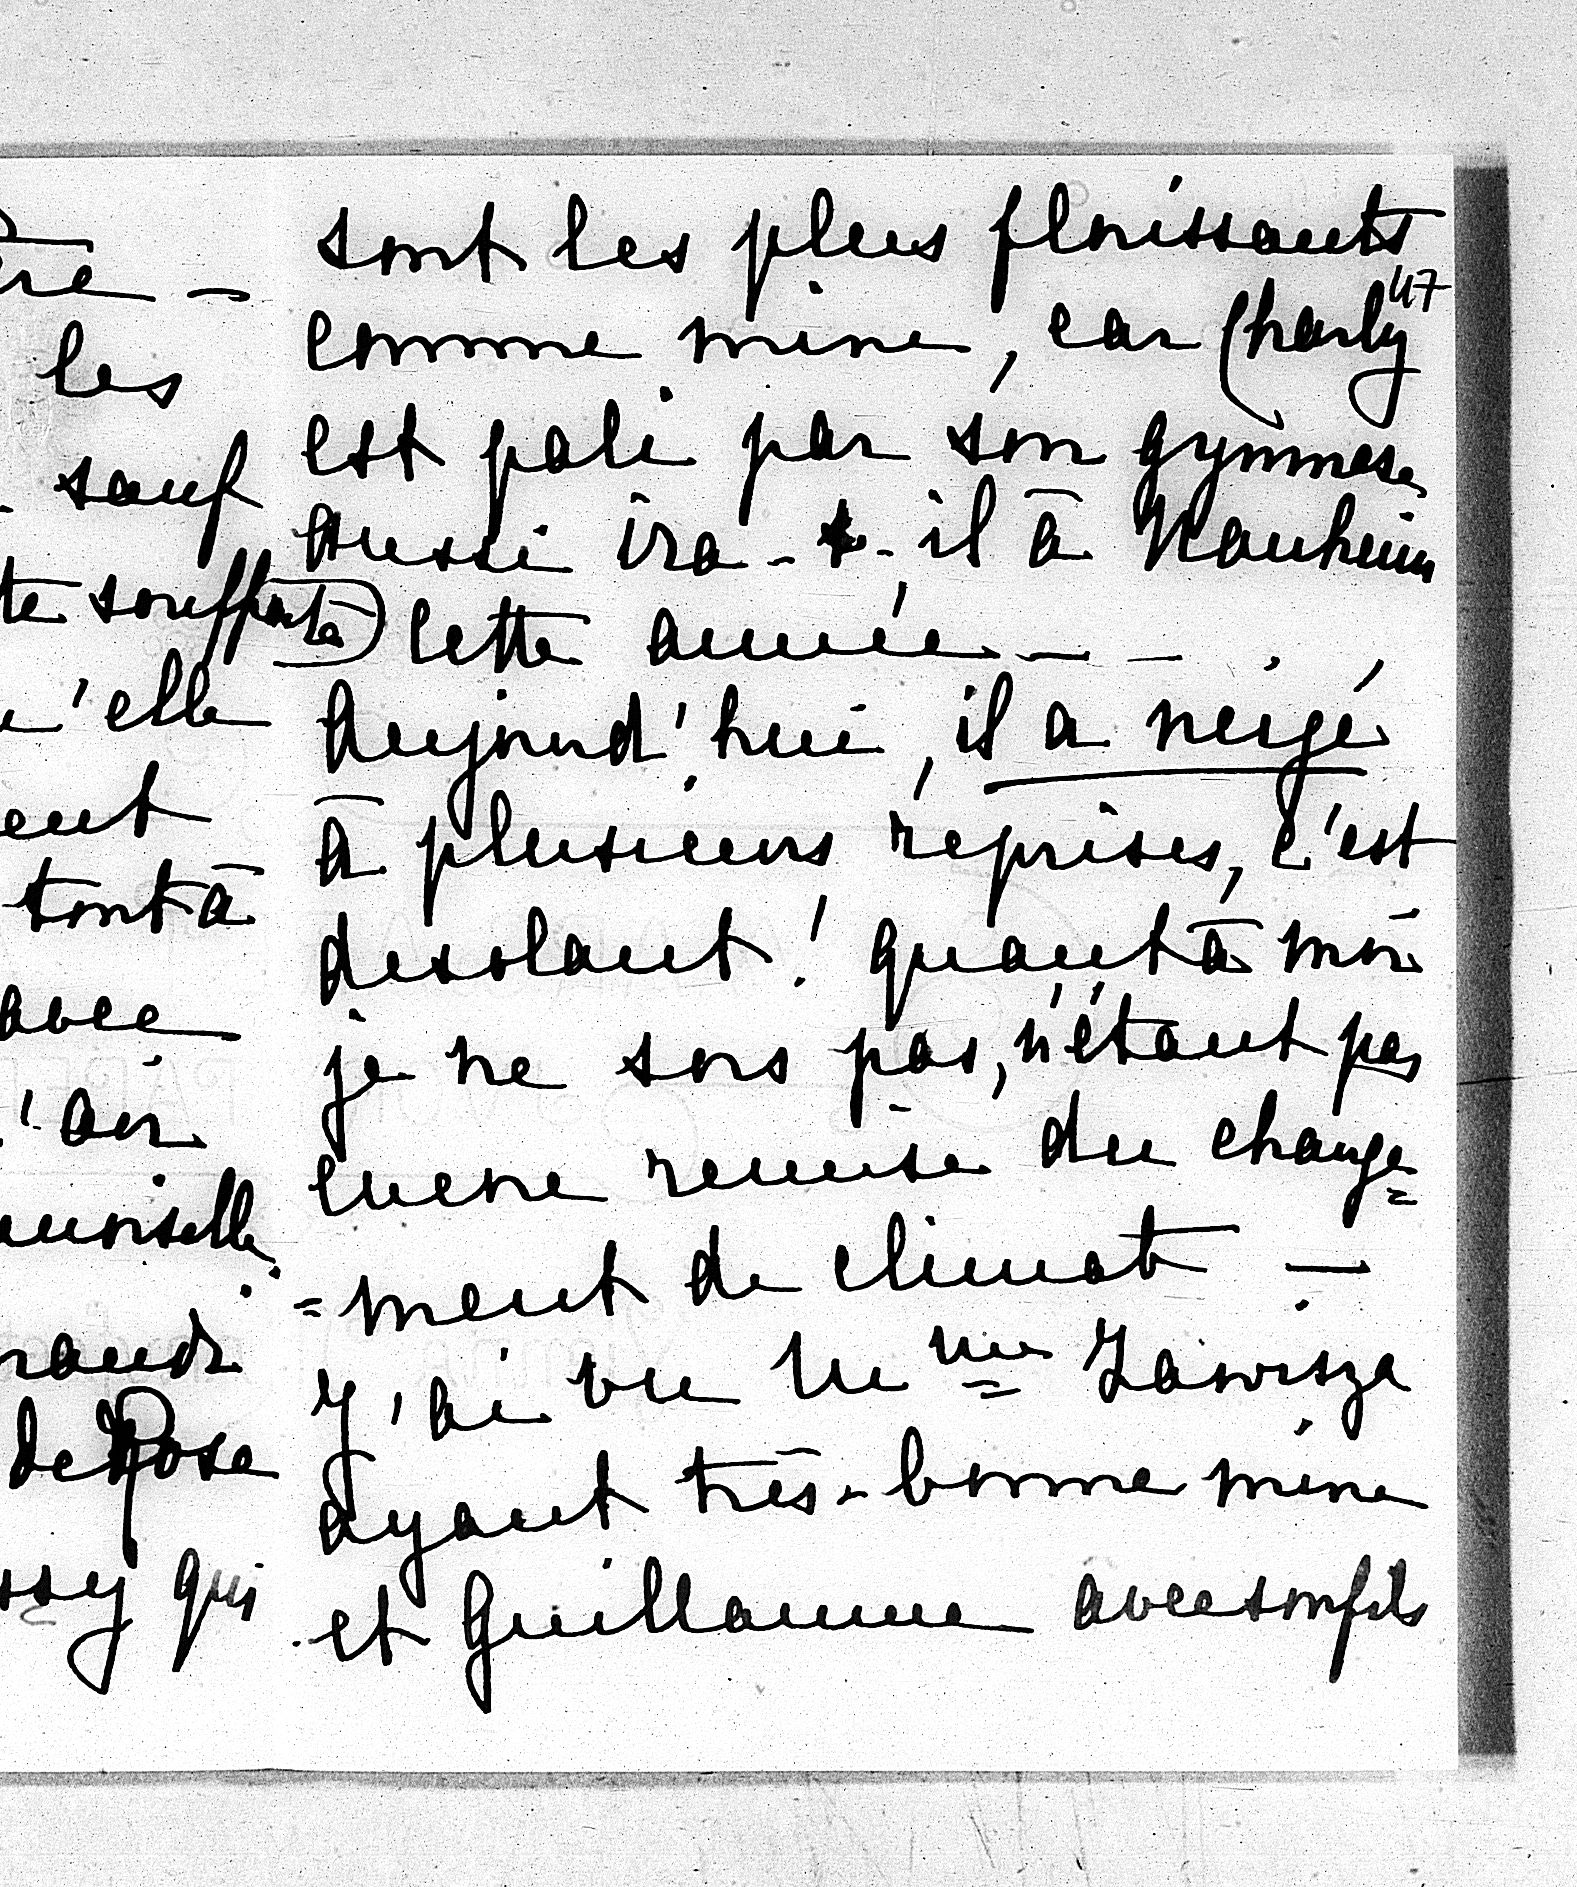 ère –
les
sauf
te souffrante
u'elle
ent
tout à
avec
l'air
moiselle
rands
de Rose
ssy qui
sont les plus florissants
47
comme mine, car Charly
est pali par son gymnase
Aussi ira-t-il à Nauheim
cette année – –
Aujourd'hui, il a neigé
à plusieurs reprises, c'est
desolant! quant à moi
je ne sors pas, n'étant pas
encore remise du change=
=ment de climat –
J'ai vu M me Zawisza
ayant très-bonne mine
et Guillaume avec son fils